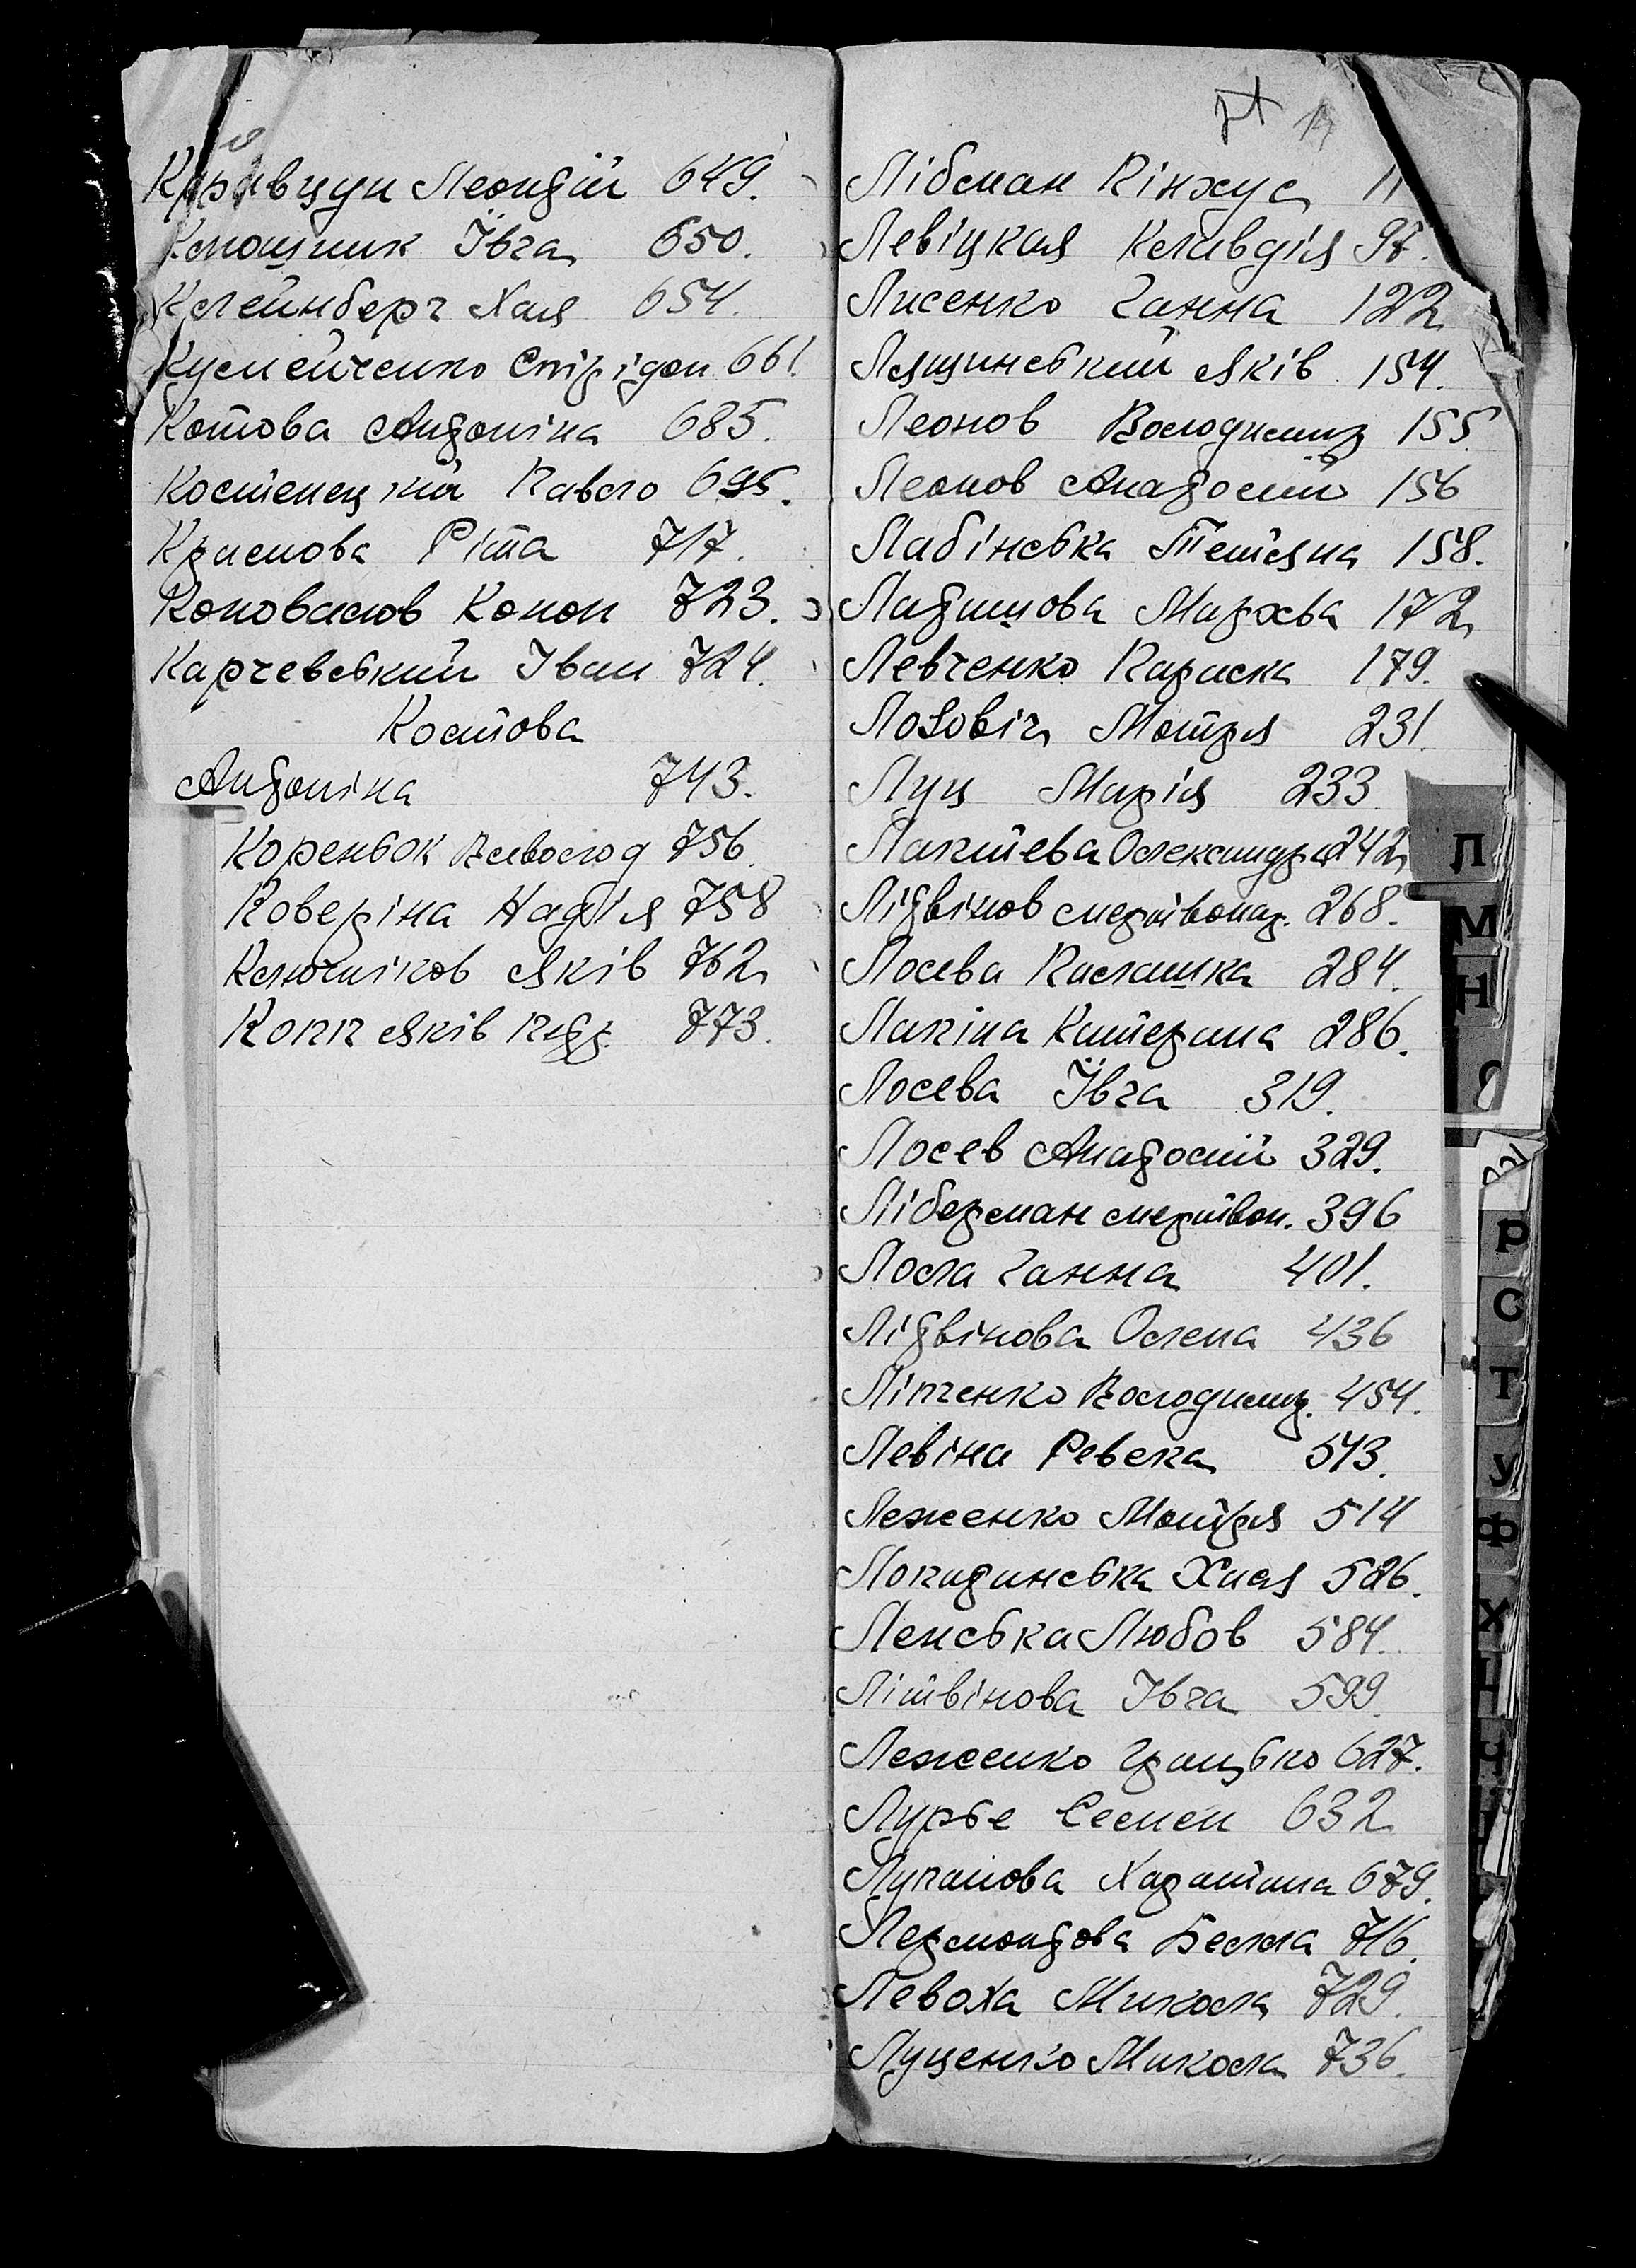 Кравцун Леонтій 649.
Клюшник Ївга 650.
Клейнберг Хая 654.
Кумейченко Спірідон 661.
Котова Антоніна 685.
Костенецкій Павло 695.
Краснова Ріта 717.
Коновалов Конон 723.
Карчевський Іван 724.
Костова
Антоніна 743.
Кореньок Всеволод 756.
Коверіна Надія 758
Ключніков Яків 762
Копп Яків 773.
Лібман Пінхус 11
Левіцкая Клавдія 97.
Лисенко Ганна 122
Лящинський Яків 154.
Леонов Володимир 155
Леонов Анатолій 156
Лабінська Тетяна 158.
Ладишова Мархва 172
Левченко Параска 179.
Лозовіч Мотря 231.
Луц Марія 233
Лаптева Олександра 242
Літвінов мертвонар. 268.
Лосева Палашка 284.
Лапіна Катерина 286.
Лосева Ївга 319.
Лосев Анатолій 329.
Ліберман мертвон. 396
Лола Ганна 401.
Літвінова Олена 436
Ліпченко Володимир. 454.
Левіна Ревека 513.
Леженко Мотря 514
Лопатинська Хися 526.
Ленська Любов 584.
Літвінова Івга 599.
Леженко Грицько 627.
Лурье Семен 632
Лупанова Харитина 679.
Лермонтова Белла 716.
Левоха Микола 729.
Луценко Микола 736.
Л
М
Н
О
Р
С
Т
У
Ф
Х